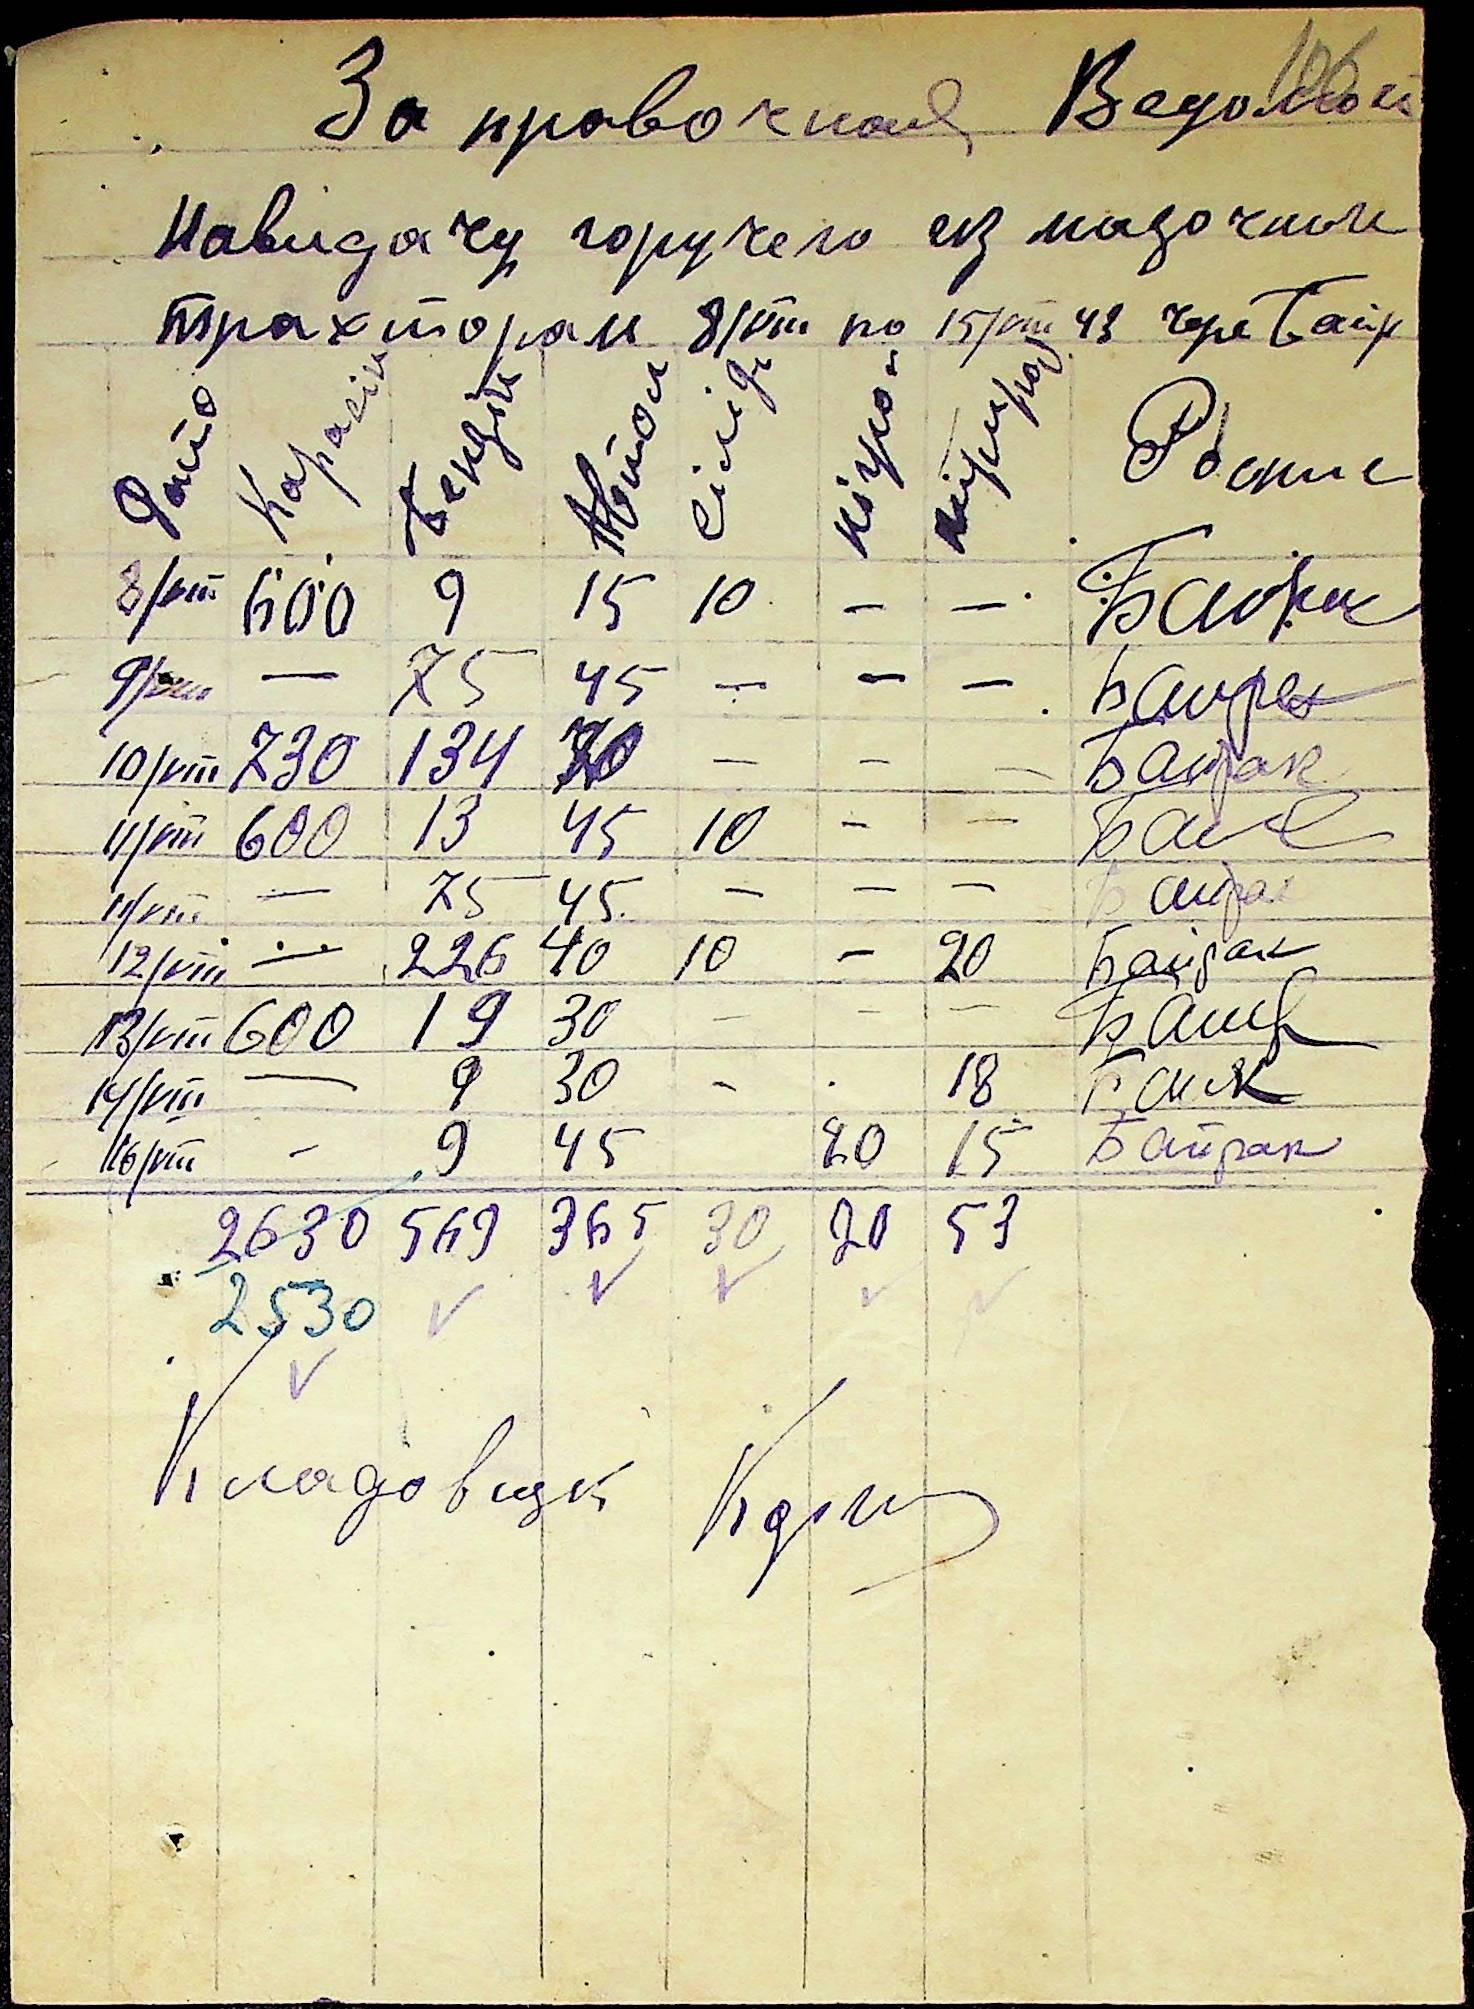 106
За правочная Ведомост
Навидачу горучего из мазочним
трахторам 8/VIII по 15/VIII 43 чере Байр
Дата Карасін Бензін Автол Солід Нігро- Роспис
8/VIII 600 9 15 10 – – Байрак
9/VIII — 75 45 – – – Байрак
10/VIII 730 134 70 – – – Байрак
11/VIII 600 13 45 10 – –
11/VIII — 75 45 – – – Байрак
12/VIII — 226 40 10 – 20 Байрак
13/VIII 600 19 30 – – –
14/VIII — 9 30 – 18
16/VIII - 9 45 20 15 Байрак
2630 569 365 30 20 53
2530
Кладовщик